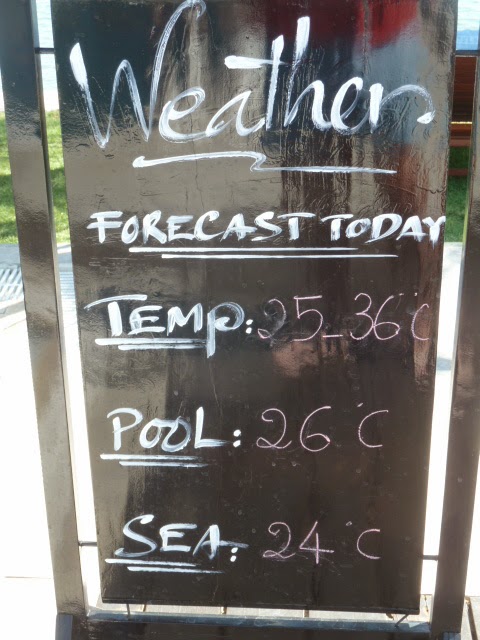 Weather
FORECAST TODAY
TEMP: 25-36°C
POOL: 26°C
SEA: 24°C